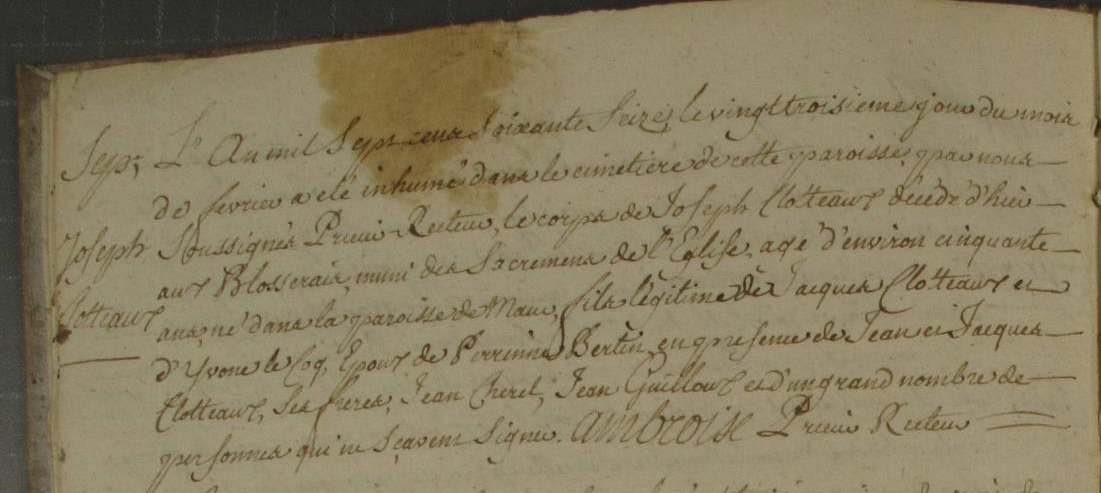 Sep.re L'An mil Sept cens soixante Seize, le vingt troisieme jour du mois
de fevrier a eté inhumé dans le cimetiere de cette paroisse, par nous
Joseph Soussignés Prieur Recteur, le corps de Joseph Clotteaux décédé d'hier
aux Blosserais, muni des Sacremens de l'Eglise, agé d'environ cinquante
Clotteaux ans, né dans la paroisse de Maur, fils légitime de Jacques Clotteaux et
d'Yvone le Coq, Epoux de Perrinne Bertin, en presence de Jean et Jacques
Clotteaux, ses freres, Jean Cherel, Jean Guilloux et d'un grand nombre de
personnes qui ne sçavent signer. Ambroise Prieur Recteur